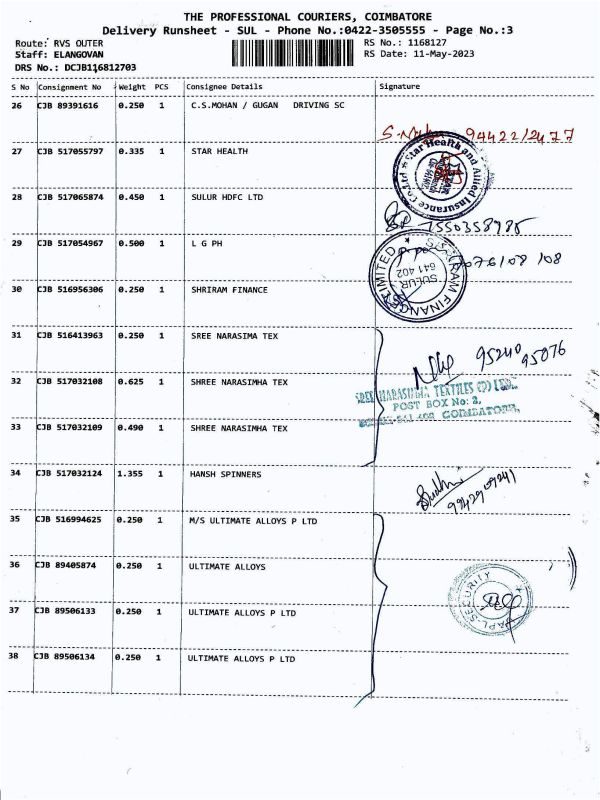 THE PROFESSIONAL COURIERS, COIMBATORE
Delivery Runsheet - SUL - Phone No.:0422-3505555 - Page No.:3
Route: RVS OUTER RS No.: 1168127
Staff: ELANGOVAN RS Date: 11-May-2023
DRS No.: DCJB116812703
S No Consignment No Weight PCS Consignee Details Signature
26 CJB 89391616 0.250 1 C.S.MOHAN / GUGAN DRIVING SC
27 CJB 517055797 0.335 1 STAR HEALTH
Star Health and Allied Insurance Co.Ltd
28 CJB 517065874 0.450 1 SULUR HDFC LTD
7550358985
29 CJB 517054967 0.500 1 L G PH
30 CJB 516956306 0.250 1 SHRIRAM FINANCE
SULUR
641 402
31 CJB 516413963 0.250 1 SREE NARASIMA TEX
95240 95076
32 CJB 517032108 0.625 1 SHREE NARASIMHA TEX
SREE NARASIMHA TEXTILES (P) LTD.
POST BOX No: 2,
COIMBATORE.
33 CJB 517032109 0.490 1 SHREE NARASIMHA TEX
34 CJB 517032124 1.355 1 HANSH SPINNERS
9942909241
35 CJB 516994625 0.250 1 M/S ULTIMATE ALLOYS P LTD
36 CJB 89405874 0.250 1 ULTIMATE ALLOYS
SECURITY
37 CJB 89506133 0.250 1 ULTIMATE ALLOYS P LTD
38 CJB 89506134 0.250 1 ULTIMATE ALLOYS P LTD